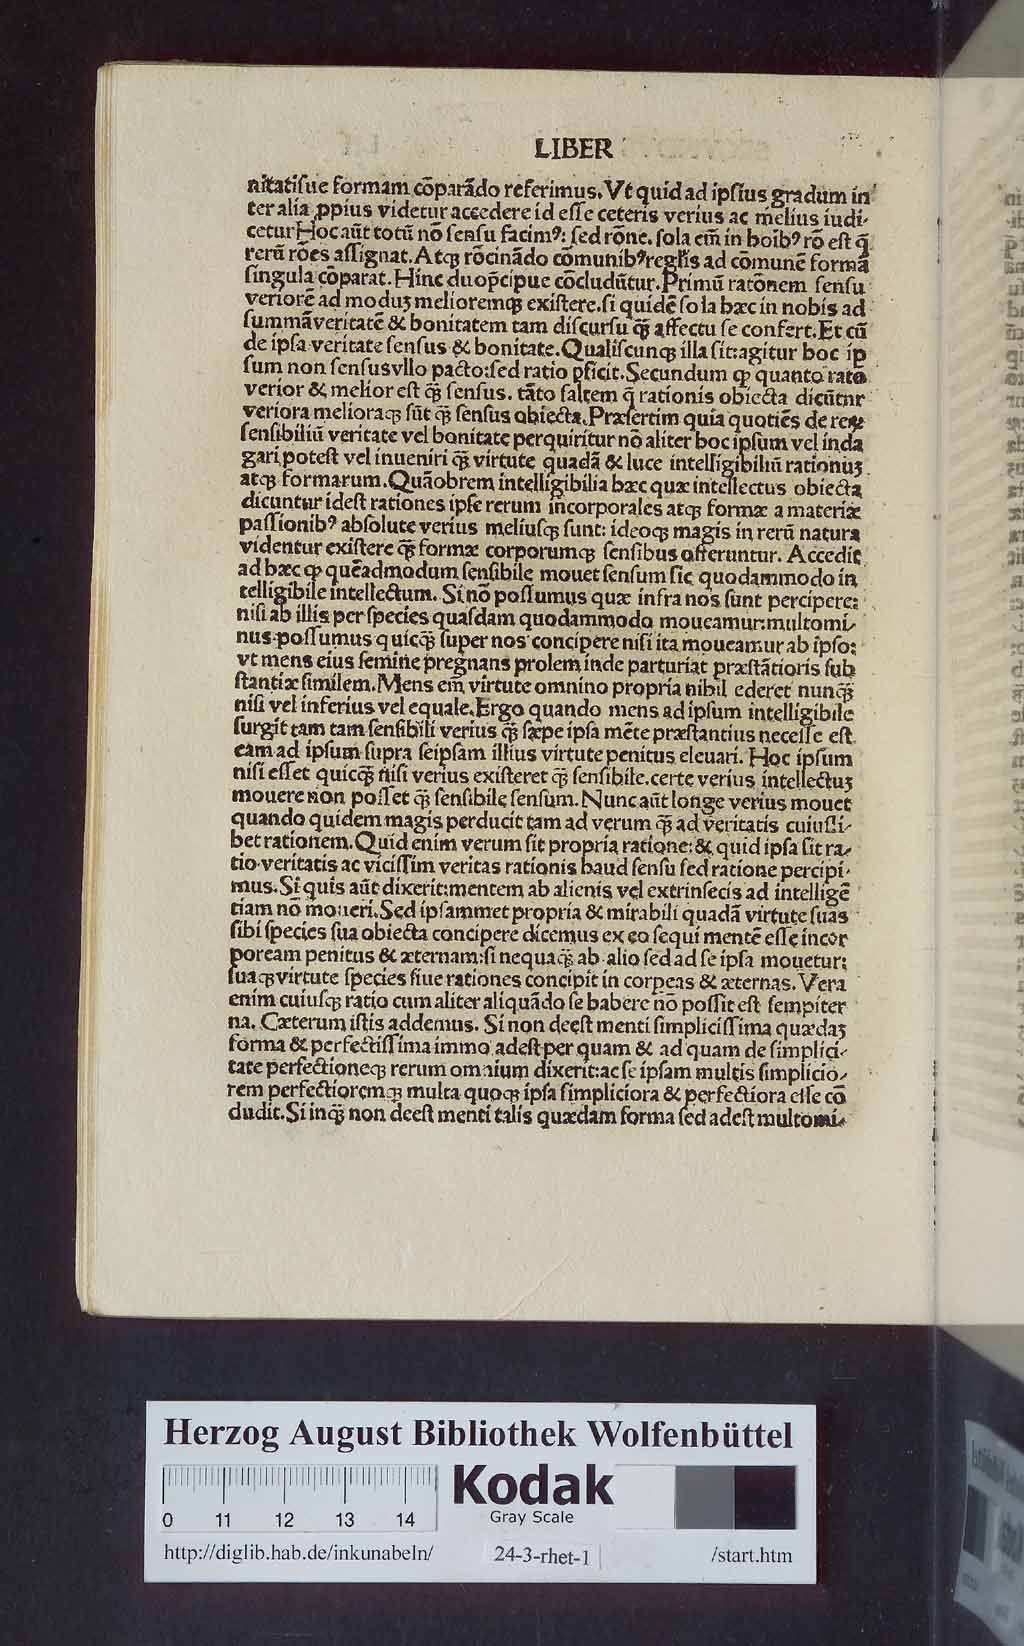 LIBER
nitatiſue formam cōparādo referimus. Vt quid ad ipſius gradum in
ter alia ꝓpius videtur accedere id eſſe ceteris verius ac melius iudi-
cetur Hoc aūt totū nō ſenſu facimꝰ: ſed rōne. ſola em̄ in hoībꝰ rō eſt q̄
rerū rōes aſſignat. Atqꝫ rōcinādo cōmunibꝰ reglis ad cōmunē formā
ſingula cōparat. Hinc duo p̄cipue cōcludūtur. Primū ratōnem ſenſu
veriorē ad moduꝫ melioremqꝫ exiſtere. ſi quidē ſola hæc in nobis ad
ſummā veritatē & bonitatem tam diſcurſu q̄ꝫ affectu ſe confert. Et cū
de ipſa veritate ſenſus & bonitate. Qualiſcunqꝫ illa ſit: agitur hoc ip
ſum non ſenſus vllo pacto: ſed ratio ꝑficit. Secundum ꝙ quanto rato
verior & melior eſt q̄ꝫ ſenſus. tāto ſaltem q̄ rationis obiecta dicūtur
veriora melioraqꝫ ſūt q̄ꝫ ſenſus obiecta. Præſertim quia quotiēs de reꝝ
ſenſibiliū veritate vel bonitate perquiritur nō aliter hoc ipſum vel inda
gari poteſt vel inueniri q̄ꝫ virtute quadā & luce intelligibiliū rationuꝫ
atqꝫ formarum. Quāobrem intelligibilia hæc quæ intellectus obiecta
dicuntur ideſt rationes ipſe rerum incorporales atqꝫ formæ a materiæ
paſſionibꝰ abſolute verius meliuſqꝫ ſunt: ideoqꝫ magis in rerū natura
videntur exiſtere q̄ꝫ formæ corporumqꝫ ſenſibus offeruntur. Accedit
ad hæc ꝙ quēadmodum ſenſibile mouet ſenſum ſic quodammodo in
telligibile intellectum. Si nō poſſumus quæ infra nos ſunt percipere:
niſi ab illis per ſpecies quaſdam quodammodo moueamur: multomi-
nus poſſumus quicq̄ꝫ ſuper nos concipere niſi ita moueamur ab ipſo:
vt mens eius ſemine pregnans prolem inde parturiat præſtātioris ſub
ſtantiæ ſimilem. Mens em̄ virtute omnino propria nihil ederet nunq̄ꝫ
niſi vel inferius vel equale. Ergo quando mens ad ipſum intelligibile
ſurgit tam tam ſenſibili verius q̄ꝫ ſæpe ipſa mēte præſtantius neceſſe eſt
eam ad ipſum ſupra ſeipſam illius virtute penitus eleuari. Hoc ipſum
niſi eſſet quicq̄ꝫ niſi verius exiſteret q̄ꝫ ſenſibile. certe verius intellectuꝫ
mouere non poſſet q̄ꝫ ſenſibile ſenſum. Nunc aūt longe verius mouet
quando quidem magis perducit tam ad verum q̄ꝫ ad veritatis cuiuſli-
bet rationem. Quid enim verum ſit propria ratione: & quid ipſa ſit ra-
tio veritatis ac viciſſim veritas rationis haud ſenſu ſed ratione percipi-
mus. Si quis aūt dixerit: mentem ab alienis vel extrinſecis ad intelligē
tiam nō moueri. Sed ipſammet propria & mirabili quadā virtute ſuas
ſibi ſpecies ſua obiecta concipere dicemus ex eo ſequi mentē eſſe incor
poream penitus & æternam: ſi nequaq̄ꝫ ab alio ſed ad ſe ipſa mouetur:
ſuaqꝫ virtute ſpecies ſiue rationes concipit in corpeas & æternas. Vera
enim cuiuſqꝫ ratio cum aliter aliquādo ſe habere nō poſſit eſt ſempiter
na. Cæterum iſtis addemus. Si non deeſt menti ſimpliciſſima quædaꝫ
forma & perfectiſſima immo adeſt per quam & ad quam de ſimplici-
tate perfectioneqꝫ rerum omnium dixerit: ac ſe ipſam multis ſimplicio-
rem perfectioremqꝫ multa quoqꝫ ipſa ſimpliciora & perfectiora eſſe cō
dudit. Si inq̄ꝫ non deeſt menti talis quædam forma ſed adeſt multomi-
Herzog August Bibliothek Wolfenbüttel
Kodak
Gray Scale
0 11 12 13 14
http://diglib.hab.de/inkunabeln/ 24-3-rhet-1 /start.htm